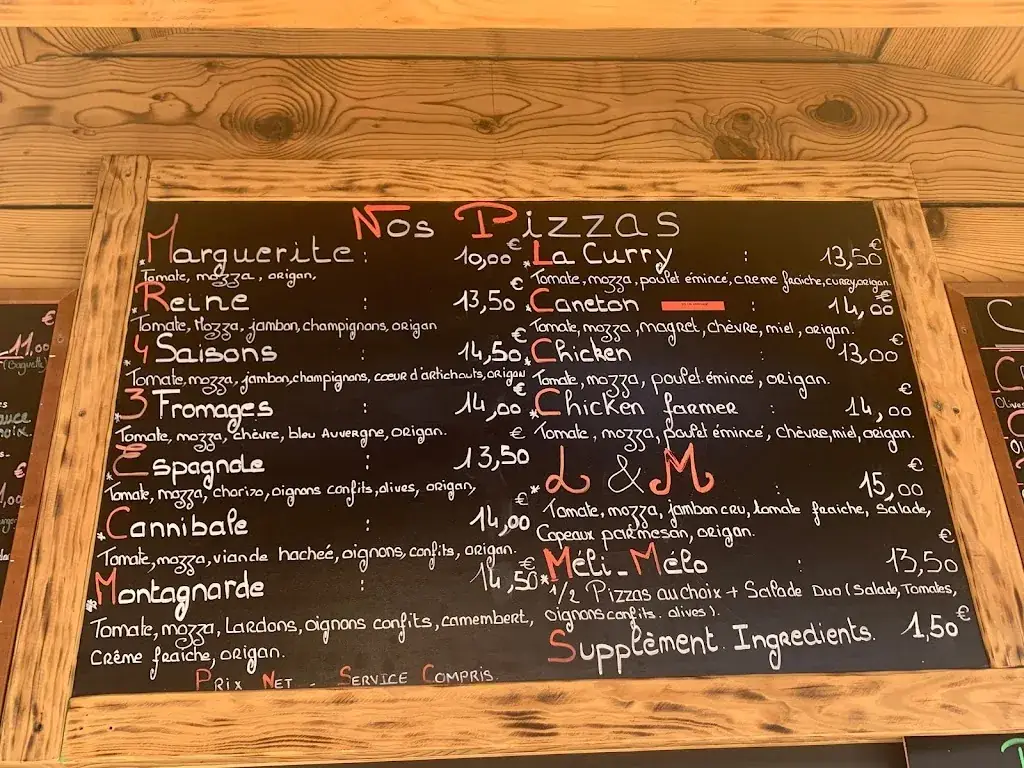 Nos Pizzas
*Marguerite : 10,00€
Tomate, mozza, origan,
*Reine : 13,50€
Tomate, Mozza, jambon, champignons, origan
*4 Saisons : 14,50€
Tomate, mozza, jambon, champignons, cœur d'artichauts, origan
*3 Fromages : 14,00€
Tomate, mozza, chèvre, bleu Auvergne, origan.
*Espagnole : 13,50€
Tomate, mozza, chorizo, oignons confits, olives, origan,
*Cannibale : 14,00€
Tomate, mozza, viande hacheé, oignons, confits, origan.
*Montagnarde : 14,50€
Tomate, mozza, Lardons, oignons confits, camembert,
Crême fraiche, origan.
Prix Net - Service Compris.
*La Curry : 13,50€
Tomate, mozza, poulet émincé, crème fraiche, curry, origan.
*Caneton : 14,00€
Tomate, mozza, magret, chèvre, miel, origan.
*Chicken : 13,00€
Tomate, mozza, poulet émincé, origan.
*Chicken farmer : 14,00€
Tomate, mozza, poulet émincé, Chèvre, miel, origan.
*L & M : 15,00€
Tomate, mozza, jambon cru, tomate fraiche, Salade,
Copeaux parmesan, origan.
*Méli-Mélo : 13,50€
1/2 Pizzas au choix + Salade Duo (Salade, Tomates,
oignons confits. olives).
Supplèment Ingredients. 1,50€
11,00€
(Baguette)